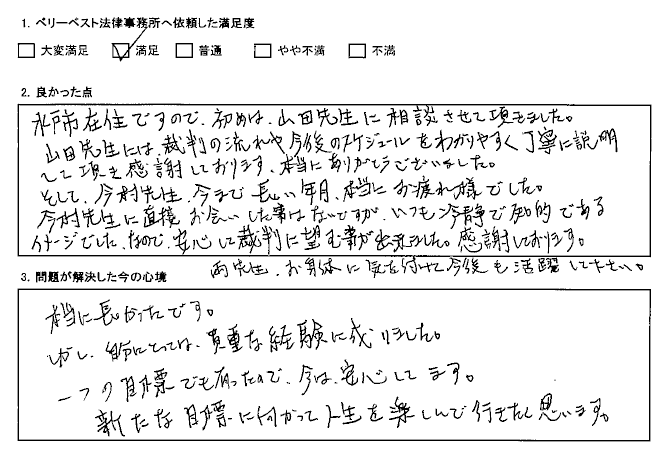 1. ベリーベスト法律事務所へ依頼した満足度
□ 大変満足 ☑ 満足 □ 普通 □ やや不満 □ 不満
2. 良かった点
水戸市在住ですので、初めは、山田先生に相談させて頂きました。
山田先生には、裁判の流れや今後のスケジュールをわかりやすく丁寧に説明
して頂き感謝しております。本当にありがとうございました。
そして、今村先生、今まで長い年月、本当にお疲れ様でした。
今村先生に直接お会いした事はないですが、いつも冷静で知的である
イメージでした。なので、安心して裁判に望む事が出来ました。感謝しております。
両先生、お身体に気を付けて今後も活躍して下さい。
3. 問題が解決した今の心境
本当に長かったです。
しかし、自分にとっては、貴重な経験に成りました。
一つの目標でも有ったので、今は、安心してます。
新たな目標に向かって人生を楽しんで行きたく思います。